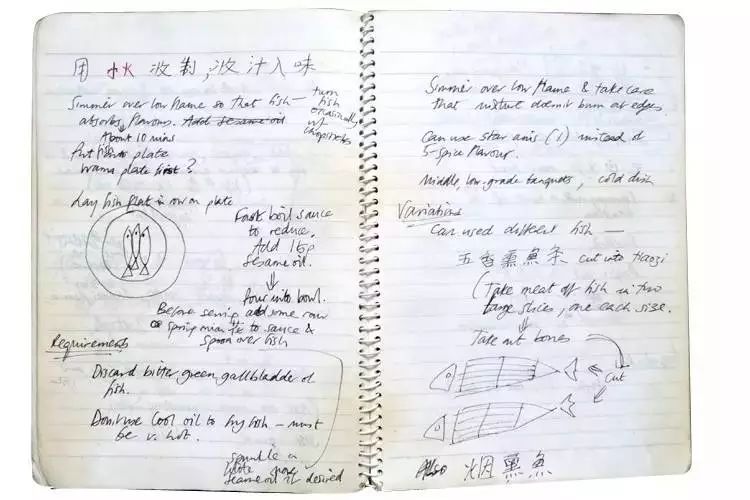 用 小火 收制，收汁入味
Simmer over low flame so that fish —
absorbs flavours. Add sesame oil
turn
fish
occasionally
w/
chopsticks
About 10 mins
Put fish on plate
warm plate first?
Lay fish flat in row on plate
Fast boil sauce
to reduce.
Add 1 tsp
sesame oil.
Pour into bowl.
Before serving add some raw
spring onion to sauce &
spoon over fish
Requirements
Discard bitter green gallbladder of
fish.
Don't use cool oil to fry fish — must
be v. hot.
sprinkle a
more
sesame oil if desired
Simmer over low flame & take care
that mixture doesn't burn at edges.
Can use star anis (1) instead of
5-spice flavour.
Middle, low-grade banquets, cold dish
Variations
Can used different fish —
五香熏魚条 cut into tiaozi
(Take meat off fish in two
large slices, one each side.
Take out bones
Cut
Also 烟熏魚